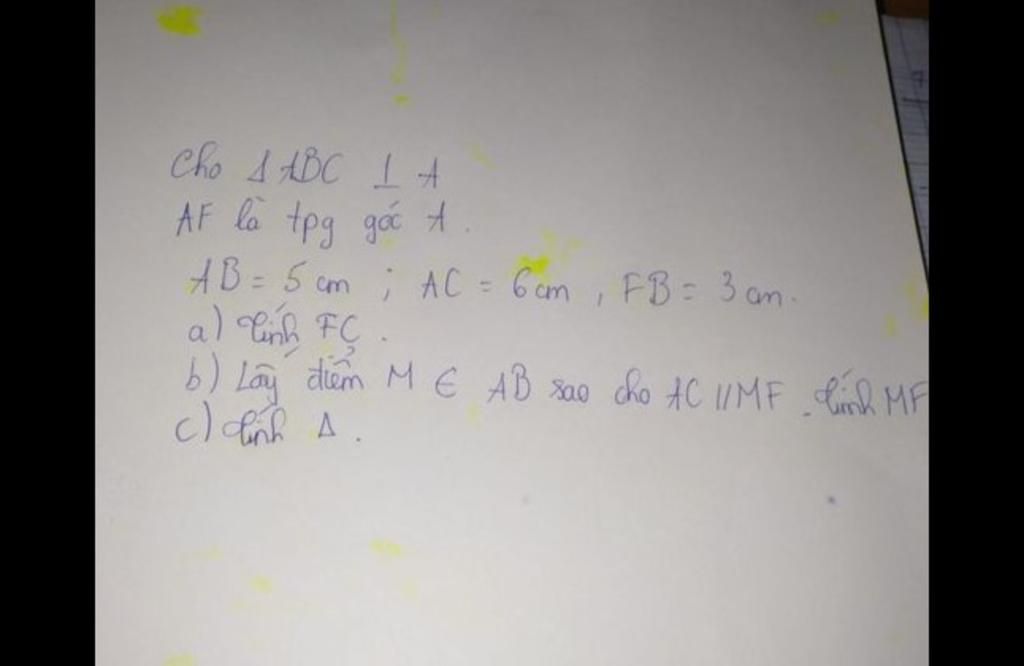 Cho Δ ABC ⊥ A
AF là tpg góc A.
AB = 5 cm ; AC = 6 cm , FB = 3 cm.
a) Tính FC.
b) Lấy điểm M ∈ AB sao cho AC // MF. Tính MF
c) Tính Δ.